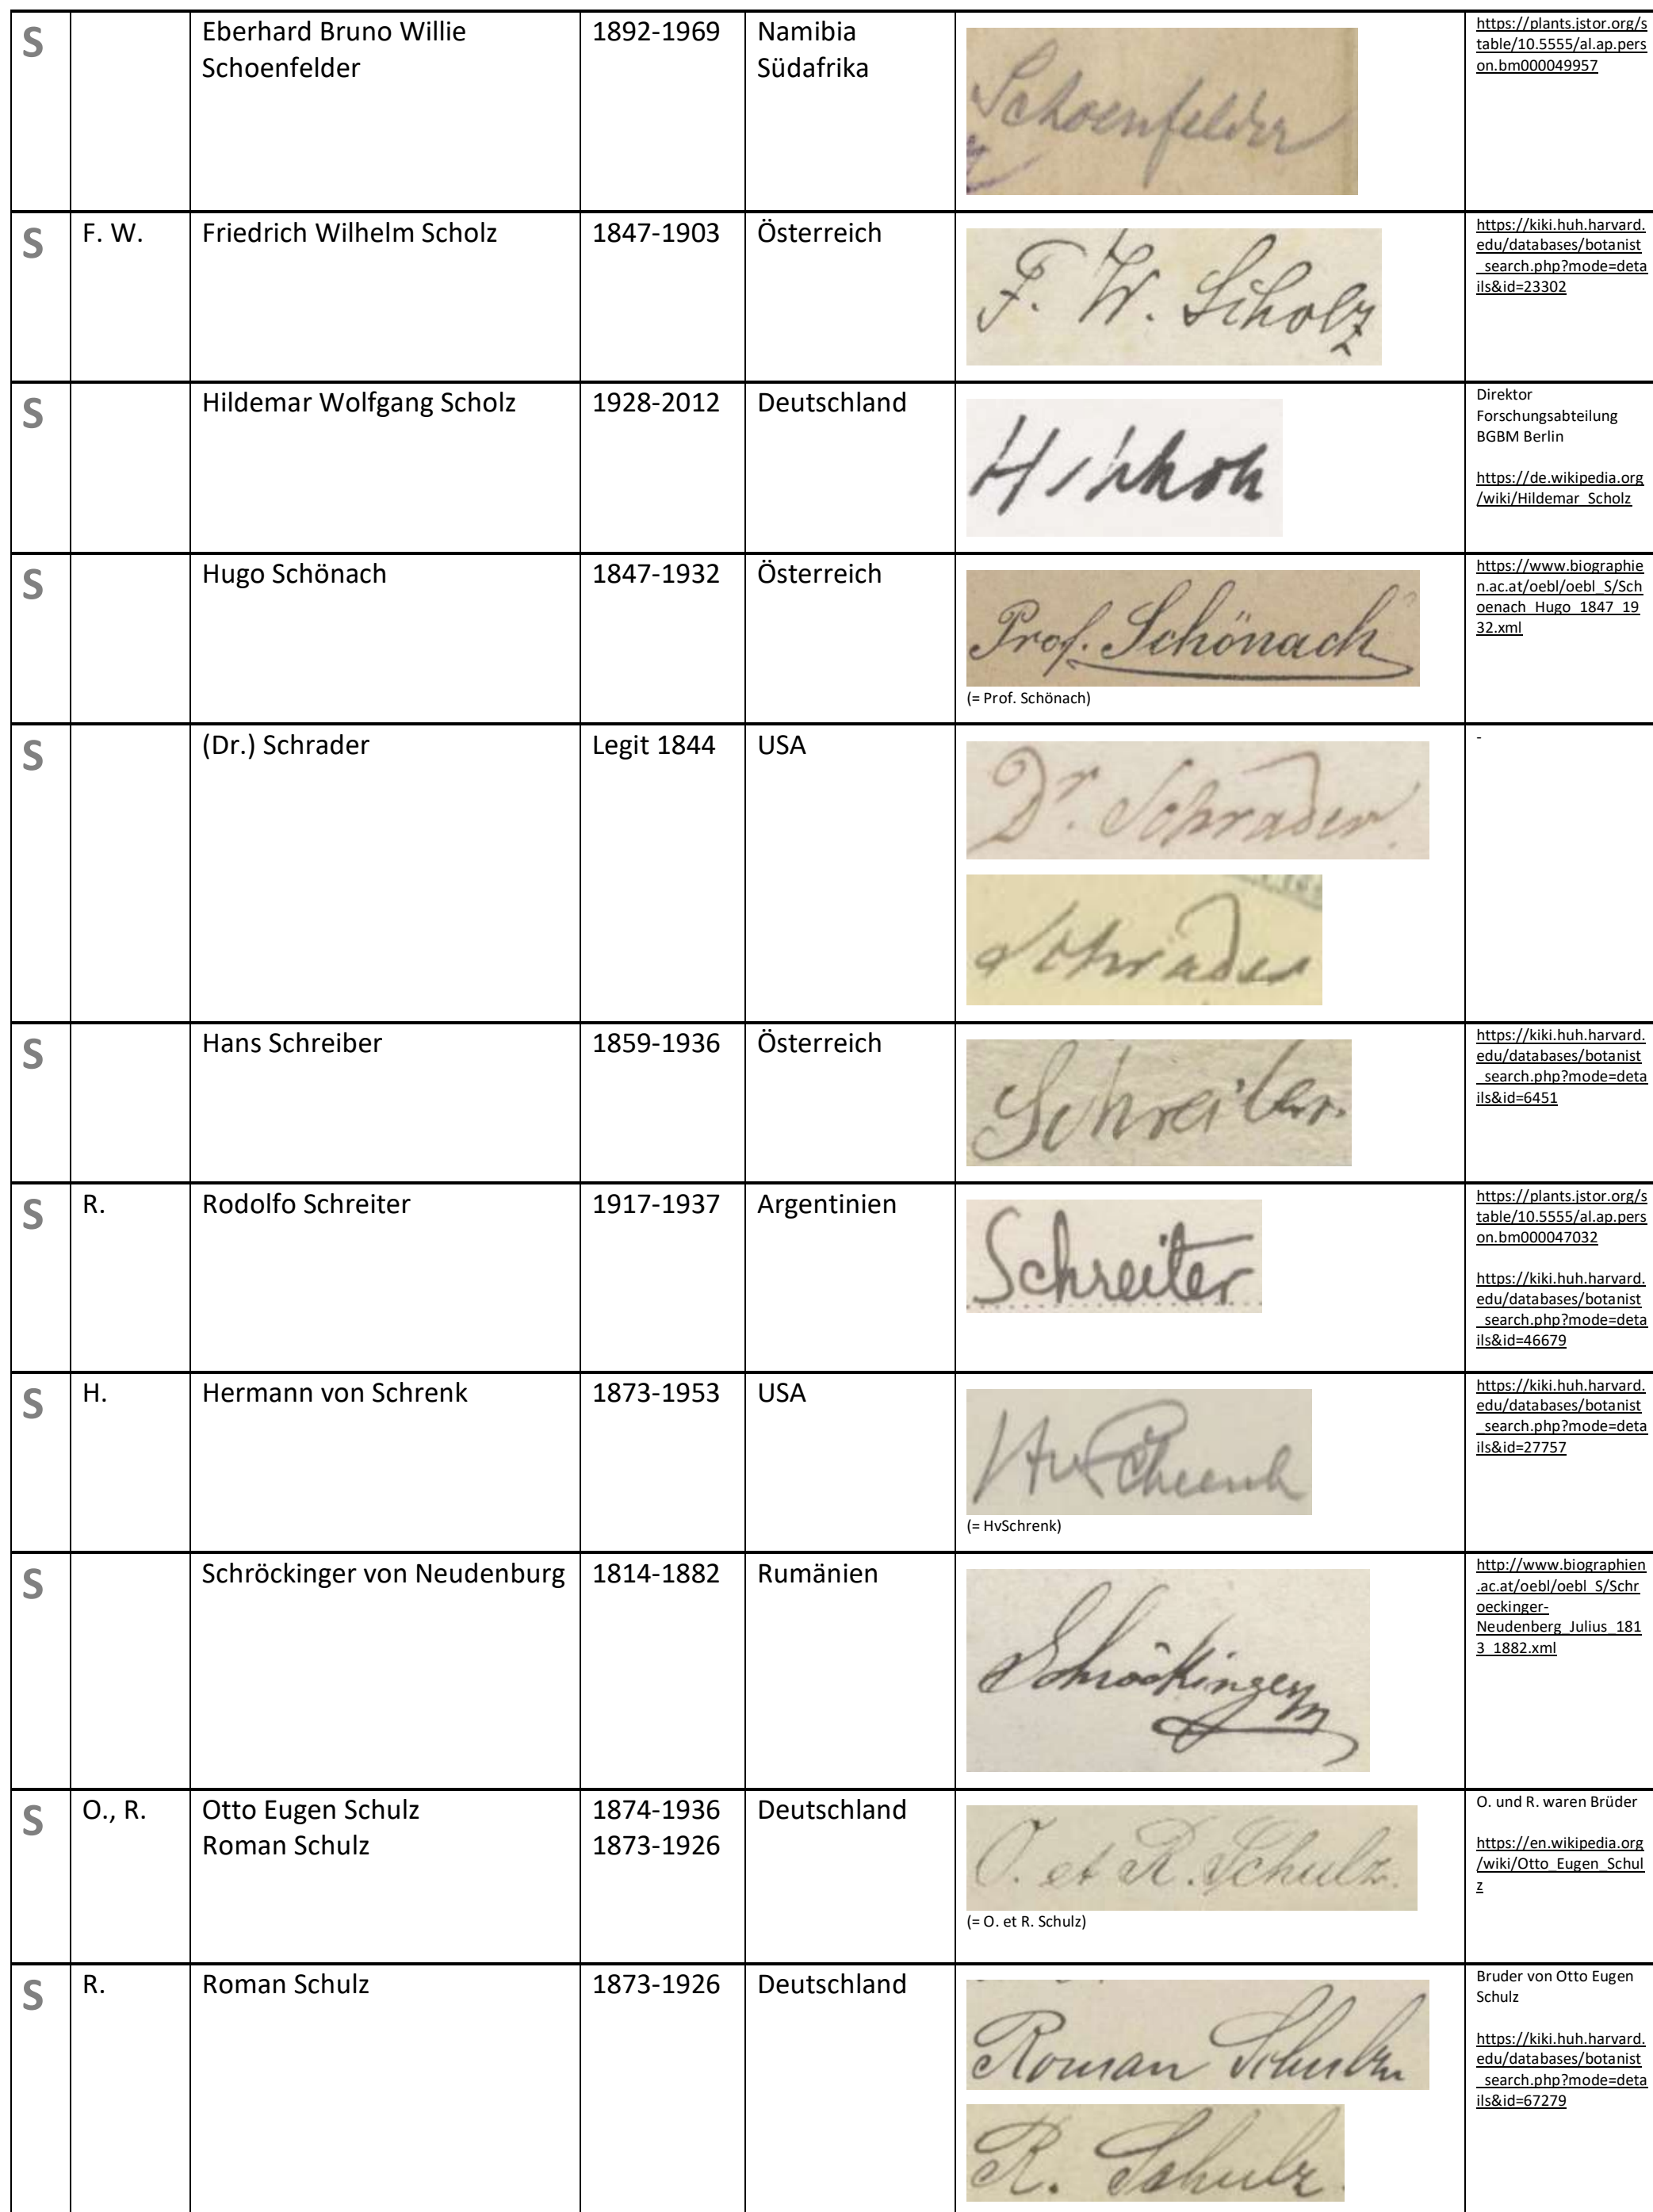 S
Eberhard Bruno Willie
Schoenfelder
1892-1969
Namibia
Südafrika
Schoenfelder
https://plants.jstor.org/s
table/10.5555/al.ap.pers
on.bm000049957
S
F. W.
Friedrich Wilhelm Scholz
1847-1903
Österreich
F. W. Scholz
https://kiki.huh.harvard.
edu/databases/botanist
_search.php?mode=deta
ils&id=23302
S
Hildemar Wolfgang Scholz
1928-2012
Deutschland
H Scholz
Direktor
Forschungsabteilung
BGBM Berlin
https://de.wikipedia.org
/wiki/Hildemar_Scholz
S
Hugo Schönach
1847-1932
Österreich
Prof. Schönach
(= Prof. Schönach)
https://www.biographie
n.ac.at/oebl/oebl_S/Sch
oenach_Hugo_1847_19
32.xml
S
(Dr.) Schrader
Legit 1844
USA
Dr. Schrader.
Schrader
-
S
Hans Schreiber
1859-1936
Österreich
Schreiber.
https://kiki.huh.harvard.
edu/databases/botanist
_search.php?mode=deta
ils&id=6451
S
R.
Rodolfo Schreiter
1917-1937
Argentinien
Schreiter
https://plants.jstor.org/s
table/10.5555/al.ap.pers
on.bm000047032
https://kiki.huh.harvard.
edu/databases/botanist
_search.php?mode=deta
ils&id=46679
S
H.
Hermann von Schrenk
1873-1953
USA
HvSchrenk
(= HvSchrenk)
https://kiki.huh.harvard.
edu/databases/botanist
_search.php?mode=deta
ils&id=27757
S
Schröckinger von Neudenburg
1814-1882
Rumänien
Schröckinger
http://www.biographien
.ac.at/oebl/oebl_S/Schr
oeckinger-
Neudenberg_Julius_181
3_1882.xml
S
O., R.
Otto Eugen Schulz
Roman Schulz
1874-1936
1873-1926
Deutschland
O. et R. Schulz.
(= O. et R. Schulz)
O. und R. waren Brüder
https://en.wikipedia.org
/wiki/Otto_Eugen_Schul
z
S
R.
Roman Schulz
1873-1926
Deutschland
Roman Schulz
R. Schulz.
Bruder von Otto Eugen
Schulz
https://kiki.huh.harvard.
edu/databases/botanist
_search.php?mode=deta
ils&id=67279